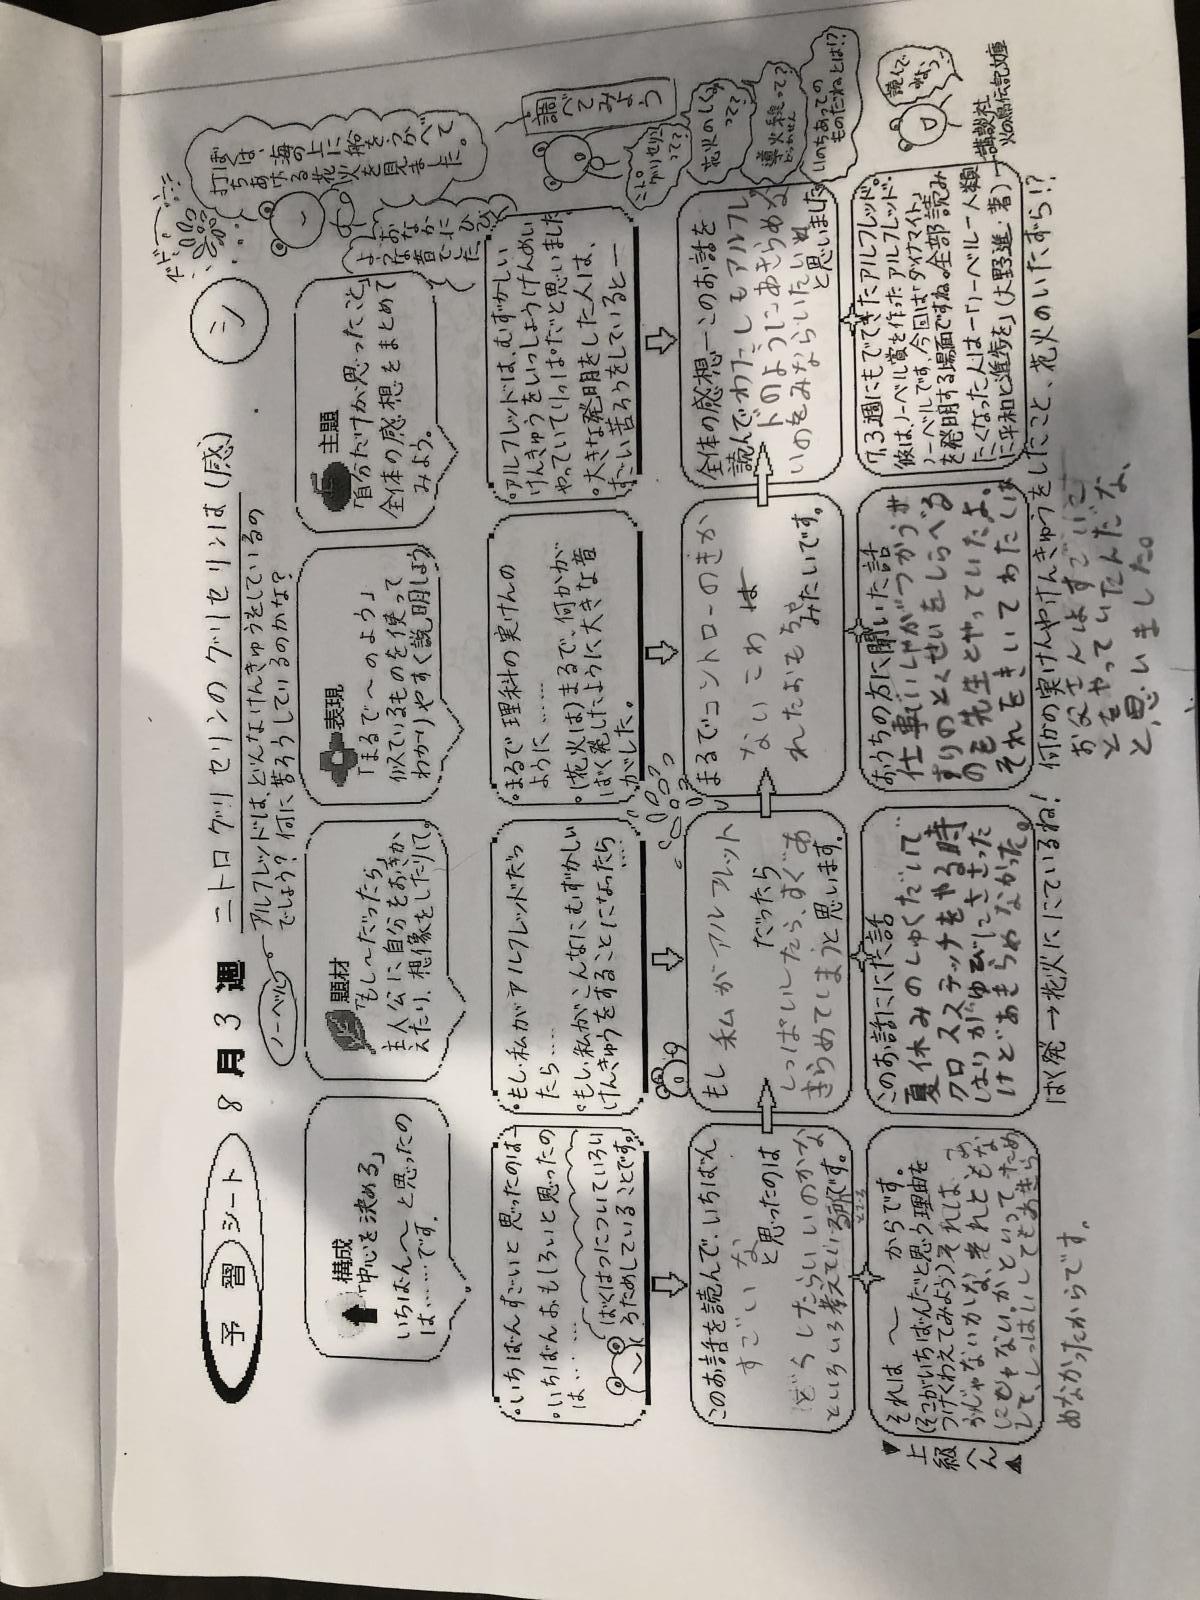 予習シート 8月3週 ニトログリセリンのグリセリンは(感) シ
ノーベル
アルフレッドは、どんなけんきゅうをしているの
でしょう? 何に苦ろうしているのかな?
ドドーン
ぼくは、海の上に船をうかべて
打ちあげる花火を見ました。
おなかにひびく
ような音でした。
構成
「中心を決める」
いちばん〜と思ったの
は、……です。
題材
「もし〜だったら」
主人公に自分をおきか
えたり、想像をしたりして。
表現
「まるで〜のよう」
似ているものを使って
わかりやすく説明しよう
主題
「自分だけが思ったこと」
全体の感想をまとめて
みよう。
。いちばんすごいと思ったのは…
。いちばんおもしろいと思ったの
は……
ばくはつについていろい
ろためしていることです。
。もし、私がアルフレッドだっ
たら……
。もし、私がこんなにむずかしい
けんきゅうをすることになったら
。まるで理科の実けんの
ように……
。(花火は)まるで、何かが
ばく発したように大きな音
がしました。
。アルフレッドは、むずかしい
けんきゅうをいっしょうけんめい
やっていてりっぱだと思いました
。大きな発明をした人は、
すごい苦ろうをしていると—
調べてみよう
ニトログリセリンって?
花火のしくみって?
導火線って?
どうかせん
いのちあっての
ものだねとは!?
このお話を読んで、いちばん
すごいな
と思ったのは
どうしたらいいのかな
といろいろ考えている所です。
ところ
もし私がアルフレット
だったら
しっぱいしたら、すぐあ
きらめてしまうと思います。
まるでコントローのきか
ないこわ
れたおもちゃ
みたいです。
全体の感想—このお話を
読んでわたしもアルフレッ
ドのようにあきらめな
いのをみならいたいね
と思いました
▼上級へん▲
それは 〜 からです。
(そこがいちばんだと思う理由を
つけくわえてみよう)
うじゃないかしな、それともな
して、しっぱいしてもあきら
めなかったからです。
このお話ににた話
夏休みのしゅくだいで
クロスステッチをやる時
はりがゆびにささった
けどあきらめなかった。
おうちの方に聞いた話
仕事でいしゃがつかう
すりのとくせいをしらべる
のを先生とやっていたよ。
それをきいてわたしは
お父さんはすごいこ
とをやっていたんだな、
と、思いました。
7、3週にもでてきたアルフレッド。
彼は、ノーベル賞を作ったアルフレッド・
ノーベルです。今回は「ダイナマイト」
を発明する場面ですね。全部読み
たくなった人は—「ノーベル—人類
に平和と進歩を」(大野進 著)—講談社
火の鳥伝記文庫
読んでみなっ
ばく発→花火ににているね!
何かの実けんやけんきゅうをしたこと、花火のいたずら!?